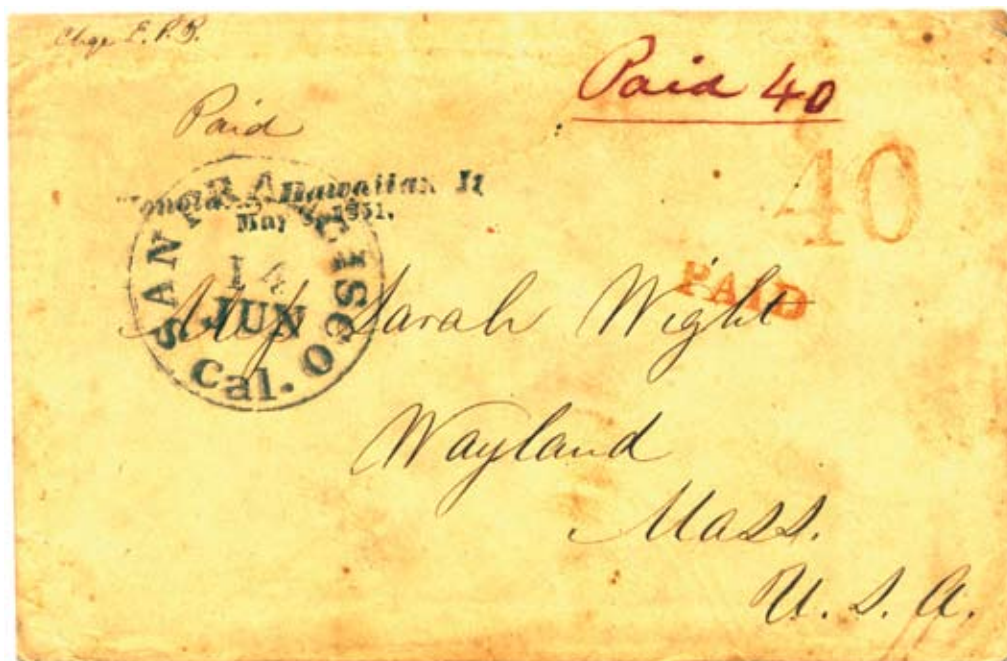 Chge E. P. B.
Paid 40
Paid
40
Honolulu, Hawaiian Is
May 9, 1851.
SAN FRANCISCO
14
JUN
Cal.
PAID
Miss Sarah Wight
Wayland
Mass.
U. S. A.